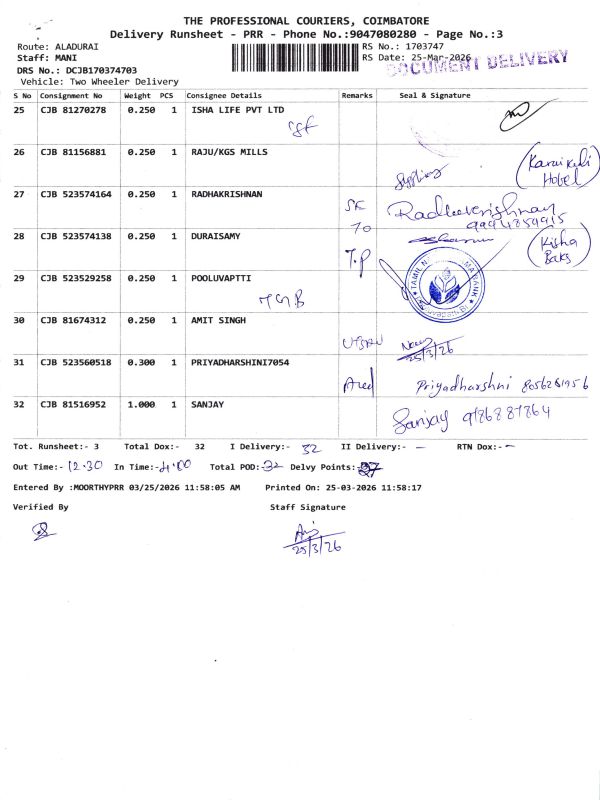 THE PROFESSIONAL COURIERS, COIMBATORE
Delivery Runsheet - PRR - Phone No.:9047080280 - Page No.:3
Route: ALADURAI
RS No.: 1703747
Staff: MANI
RS Date: 25-Mar-2026
DOCUMENT DELIVERY
DRS No.: DCJB170374703
Vehicle: Two Wheeler Delivery
S No Consignment No Weight PCS Consignee Details Remarks Seal & Signature
25 CJB 81270278 0.250 1 ISHA LIFE PVT LTD
26 CJB 81156881 0.250 1 RAJU/KGS MILLS
Hotel
27 CJB 523574164 0.250 1 RADHAKRISHNAN
Radhakrishnan
28 CJB 523574138 0.250 1 DURAISAMY
T.P
29 CJB 523529258 0.250 1 POOLUVAPTTI
BANK
30 CJB 81674312 0.250 1 AMIT SINGH
25/3/26
31 CJB 523560518 0.300 1 PRIYADHARSHINI7054
Priyadharshni 8056281956
32 CJB 81516952 1.000 1 SANJAY
Sanjay
Tot. Runsheet:- 3 Total Dox:- 32 I Delivery:- 32 II Delivery:- - RTN Dox:- -
Out Time:- 12.30 In Time:- 4:00 Total POD:- 32 Delvy Points:- 27
Entered By :MOORTHYPRR 03/25/2026 11:58:05 AM Printed On: 25-03-2026 11:58:17
Verified By Staff Signature
25/3/26